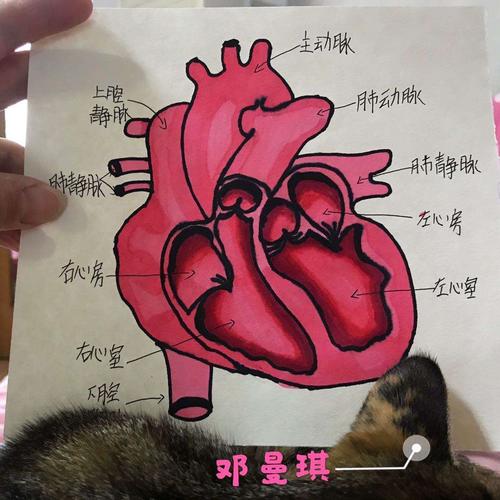 主动脉
上腔
静脉
肺动脉
肺静脉
肺静脉
左心房
右心房
左心室
右心室
下腔
邓曼琪